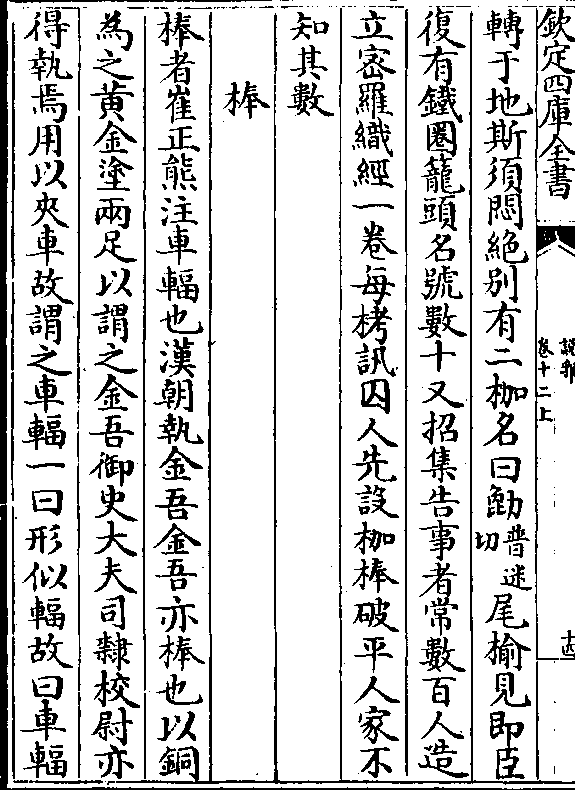 欽定四庫全書
說郛
卷十二上
十四
轉于地斯須悶絕别有二枷名曰勔普迷切尾榆見即臣
復有鐵圈籠頭名號數十又招集告事者常數百人造
立密羅織經一卷每栲訊囚人先設枷棒破平人家不
知其數
棒
棒者崔正熊注車輻也漢朝執金吾金吾亦棒也以銅
為之黄金塗兩足以謂之金吾御史大夫司隸校尉亦
得執焉用以夾車故謂之車輻一曰形似輻故曰車輻